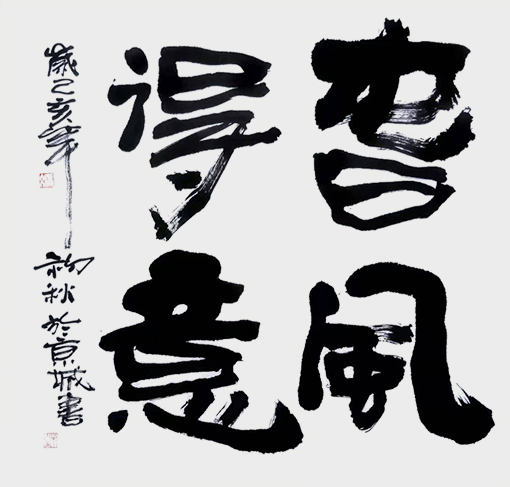 旾風
得意
歲己亥年初秋於京城書